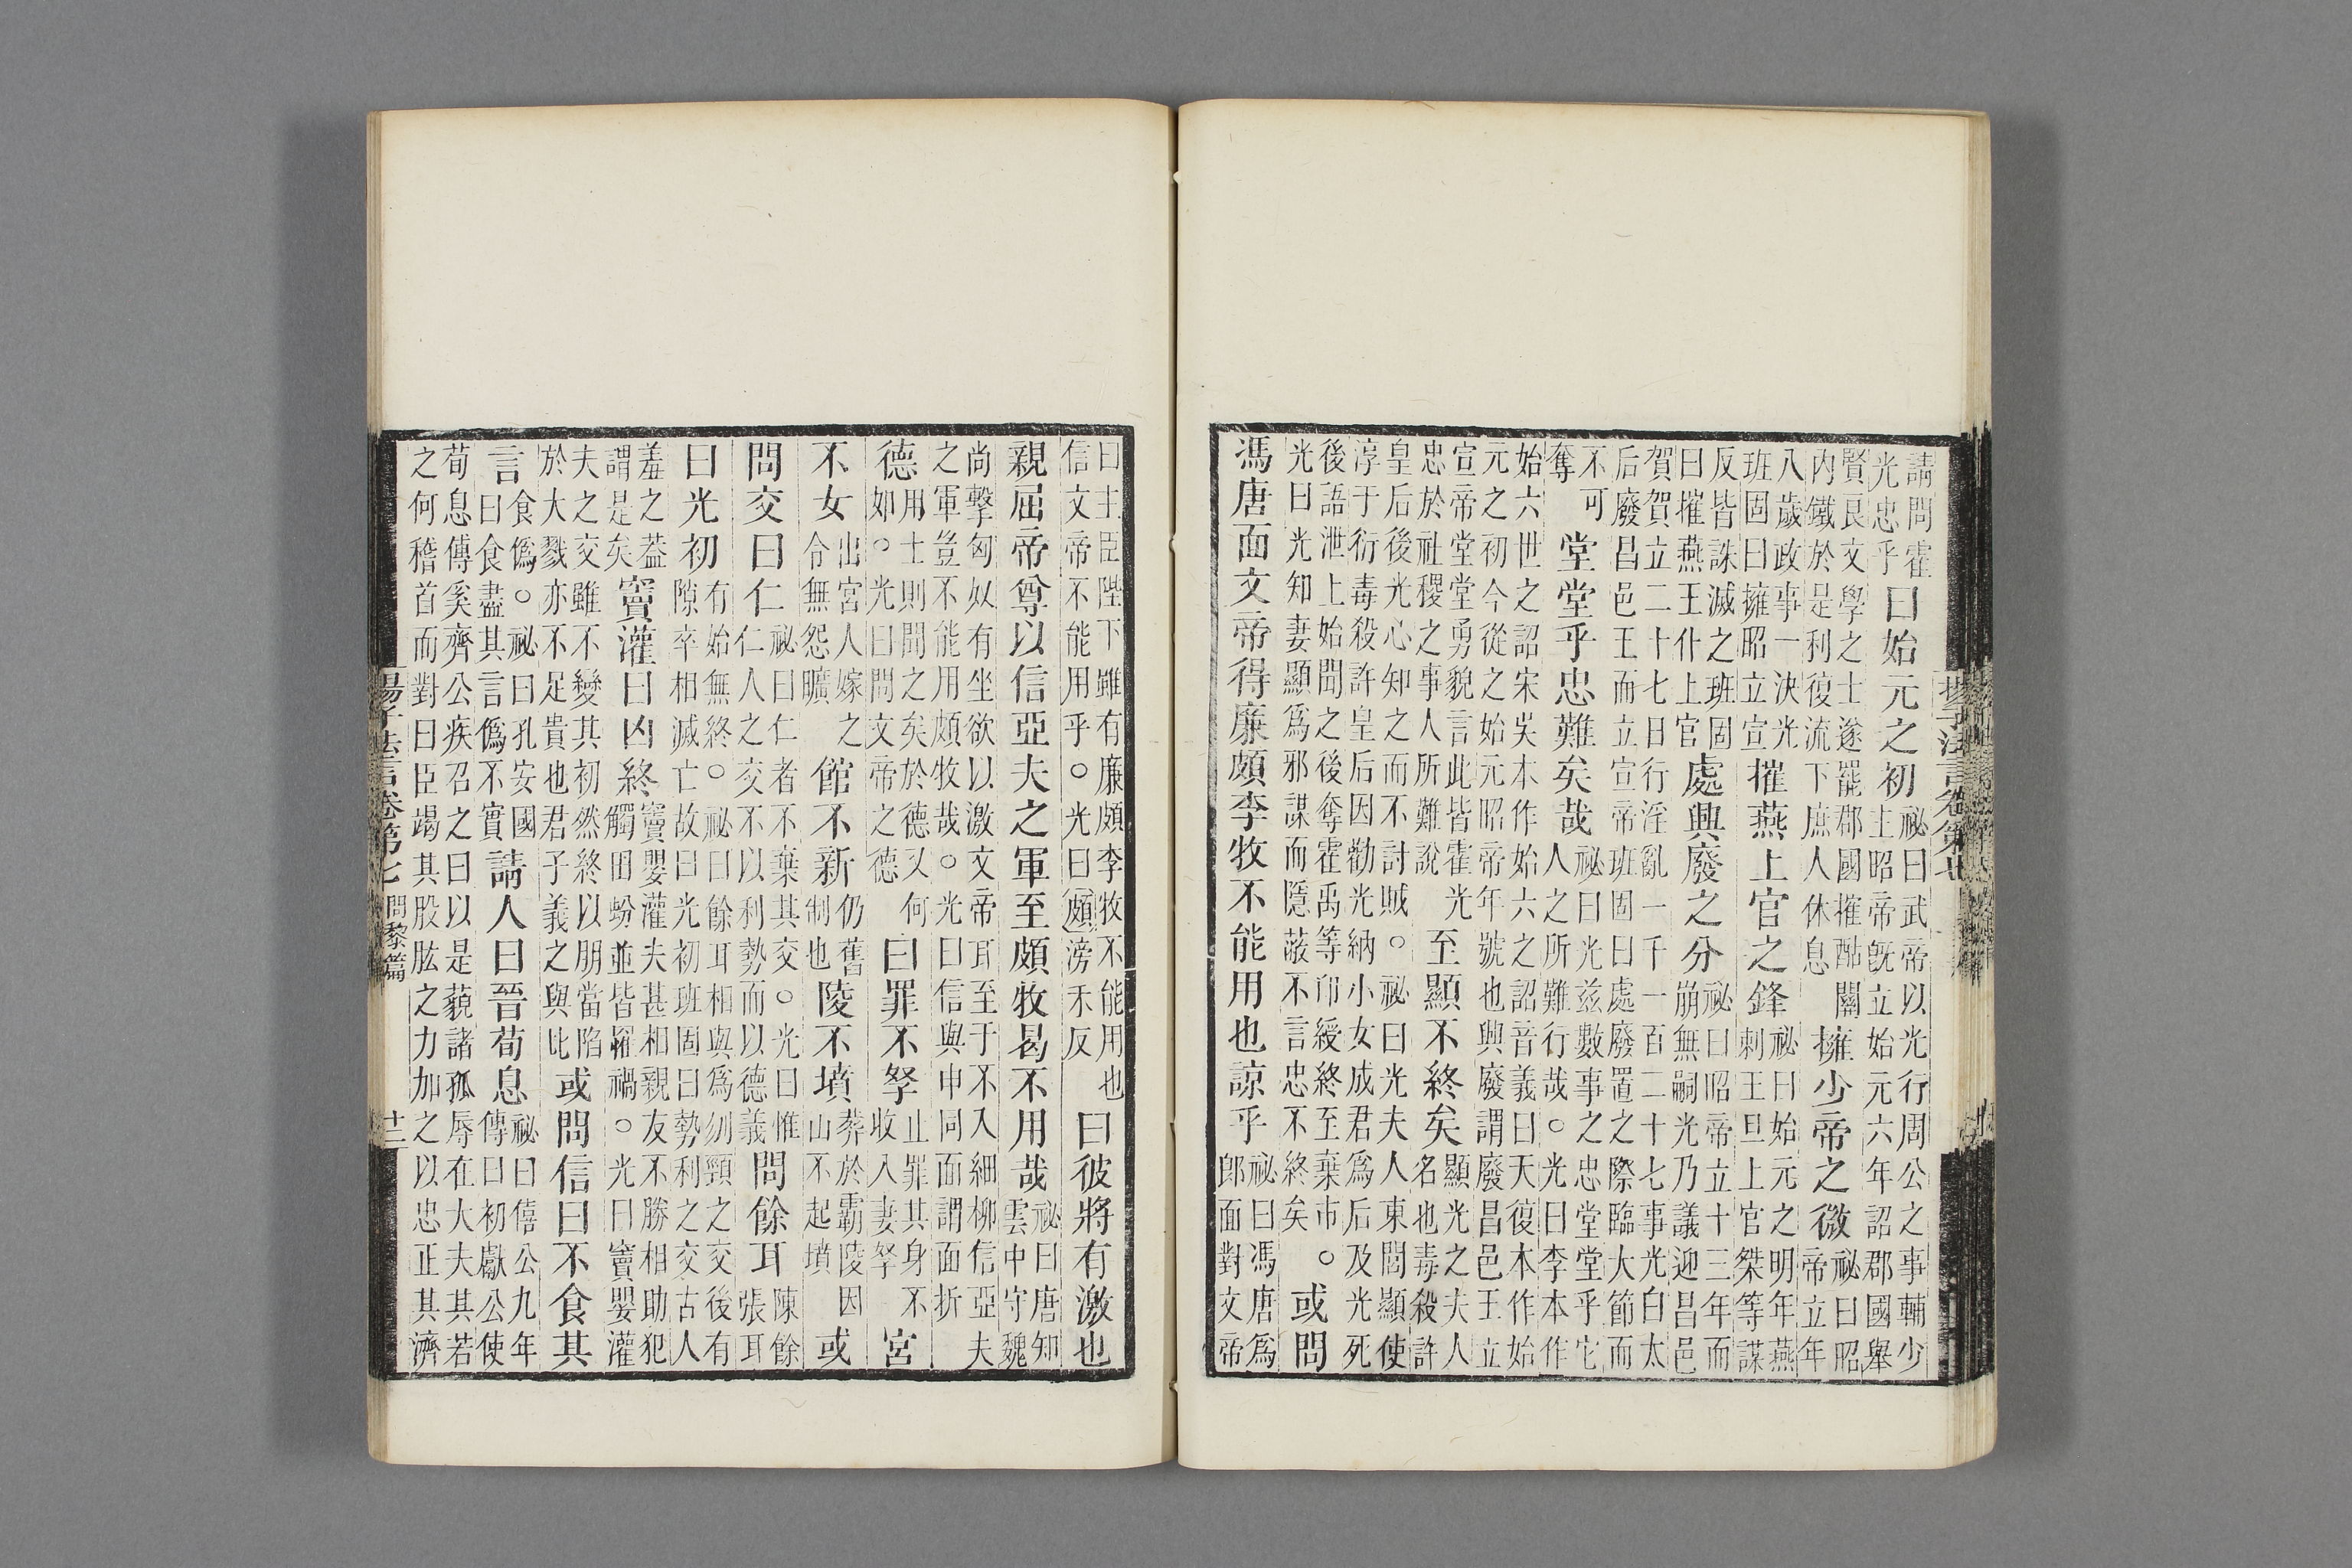 請問霍
光忠乎
曰始元之初
祕曰武帝以光行周公之事輔少
主昭帝旣立始元六年詔郡國舉
賢良文學之士遂罷郡國摧酤關
内鐵於是利復流下庶人休息
擁少帝之微
祕曰昭
帝立年
八歲政事一決光
班固曰擁昭立宣
摧燕上官之鋒
祕曰始元之明年燕
剌王旦上官桀等謀
反皆誅滅之班固
曰摧燕王仆上官
處興廢之分
祕曰昭帝立十三年而
崩無嗣光乃議迎昌邑
賀賀立二十七日行淫亂一千一百二十七事光白太
后廢昌邑王而立宣帝班固曰處廢置之際臨大節而
不可
奪
堂堂乎忠難矣哉
祕曰光兹數事之忠堂堂乎它
人之所難行哉。光曰李本作
始六世之詔宋吳本作始六之詔音義曰天復本作始
元之初今從之始元昭帝年號也興廢謂廢昌邑王立
宣帝堂堂勇貌言此皆霍光
忠於社稷之事人所難說
至顯不終矣
顯光之夫人
名也毒殺許
皇后後光心知之而不討賊。祕曰光夫人東閭顯使
淳于衍毒殺許皇后因勸光納小女成君爲后及光死
後語泄上始聞之後奪霍禹等印綬終至棄市。
光曰光知妻顯爲邪謀而隱蔽不言忠不終矣
或問
馮唐面文帝得廉頗李牧不能用也諒乎
祕曰馮唐爲
郎面對文帝
曰主臣陛下雖有廉頗李牧不能用也
信文帝不能用乎。光曰頗滂禾反
曰彼將有激也
親屈帝尊以信亞夫之軍至頗牧曷不用哉
祕曰唐知
雲中守魏
尚擊匈奴有坐欲以激文帝耳至于不入細柳信亞夫
之軍豈不能用頗牧哉。光曰信與申同面謂面折
德
用士則聞之矣於德又何
如。光曰問文帝之德
曰罪不孥
止罪其身不
收入妻孥
宮
不女
出宮人嫁之
令無怨曠
館不新
仍舊
制也
陵不墳
葬於霸陵因
山不起墳
或
問交曰仁
祕曰仁者不棄其交。光曰惟
仁人之交不以利勢而以德義
問餘耳
陳餘
張耳
曰光初
有始無終。祕曰餘耳相與爲刎頸之交後有
隙卒相滅亡故曰光初班固曰勢利之交古人
羞之葢
謂是矣
竇灌曰凶終
竇嬰灌夫甚相親友不勝相助犯
觸田蚡並皆罹禍。光曰竇嬰灌
夫之交雖不變其初然終以朋當陷
於大戮亦不足貴也君子義之與比
或問信曰不食其
言
食僞。祕曰孔安國
曰食盡其言僞不實
請人曰晉荀息
祕曰僖公九年
傳曰初獻公使
荀息傅奚齊公疾召之曰以是藐諸孤辱在大夫其若
之何稽首而對曰臣竭其股肱之力加之以忠正其濟
揚子法言卷第七 問黎篇 十二